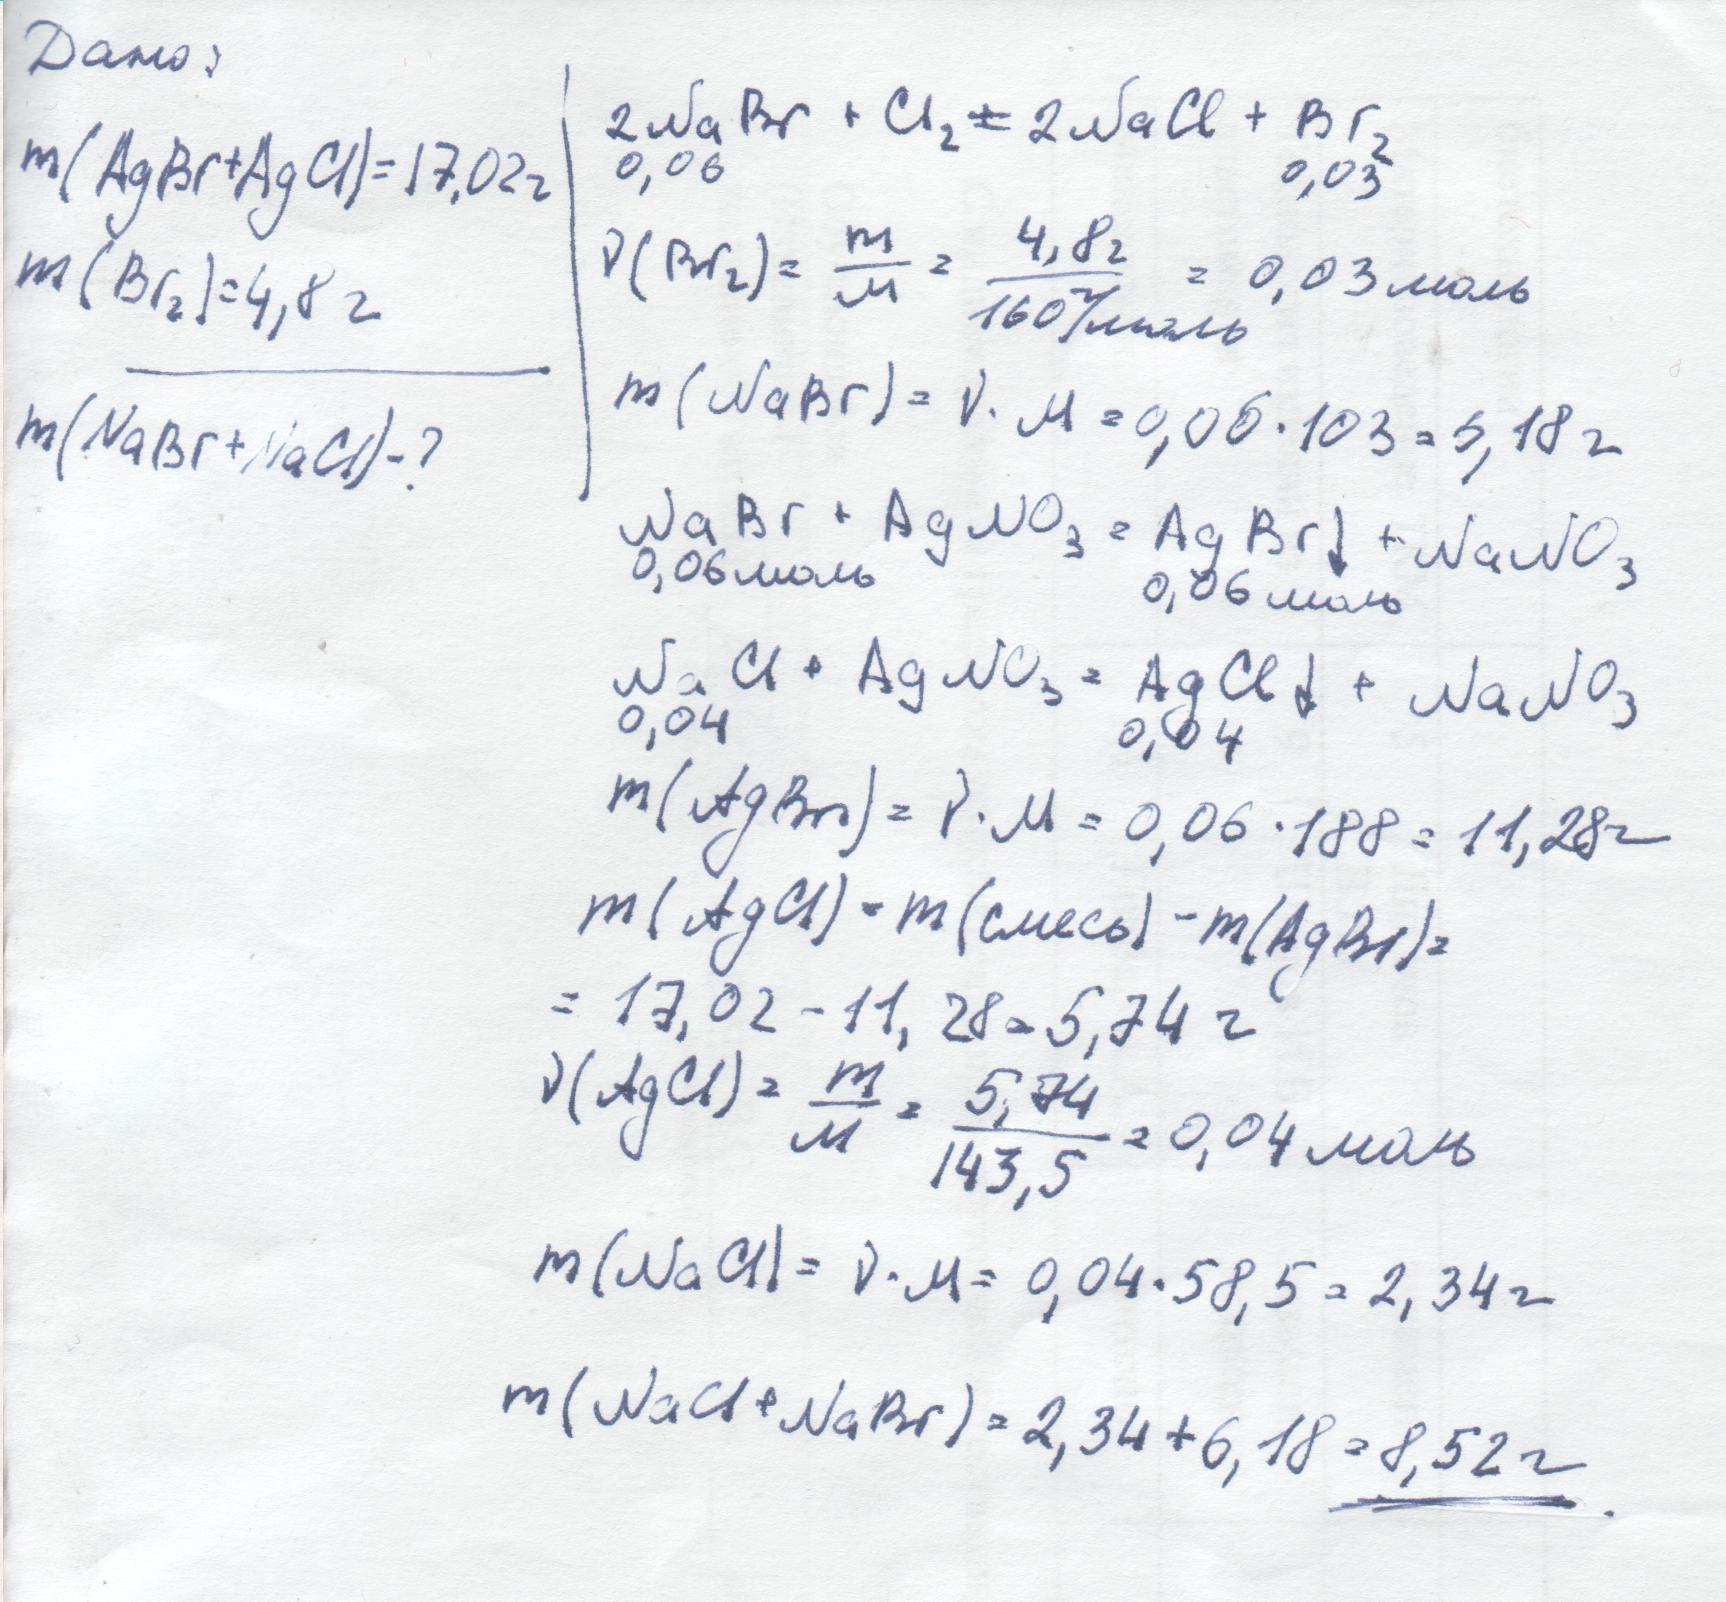 Дано:
m(AgBr+AgCl)=17,02г
m(Br₂)=4,8г
m(NaBr+NaCl)-?
2NaBr + Cl₂ = 2NaCl + Br₂
0,06 0,03
ν(Br₂) = m/M = 4,8г/160г/моль = 0,03 моль
m(NaBr) = ν·M = 0,06·103 = 5,18г
NaBr + AgNO₃ = AgBr↓ + NaNO₃
0,06 моль 0,06 моль
NaCl + AgNO₃ = AgCl↓ + NaNO₃
0,04 0,04
m(AgBr) = ν·M = 0,06·188 = 11,28г
m(AgCl) = m(смесь) - m(AgBr) =
= 17,02 - 11,28 = 5,74 г
ν(AgCl) = m/M = 5,74/143,5 = 0,04 моль
m(NaCl) = ν·M = 0,04·58,5 = 2,34г
m(NaCl+NaBr) = 2,34+6,18 = 8,52г.